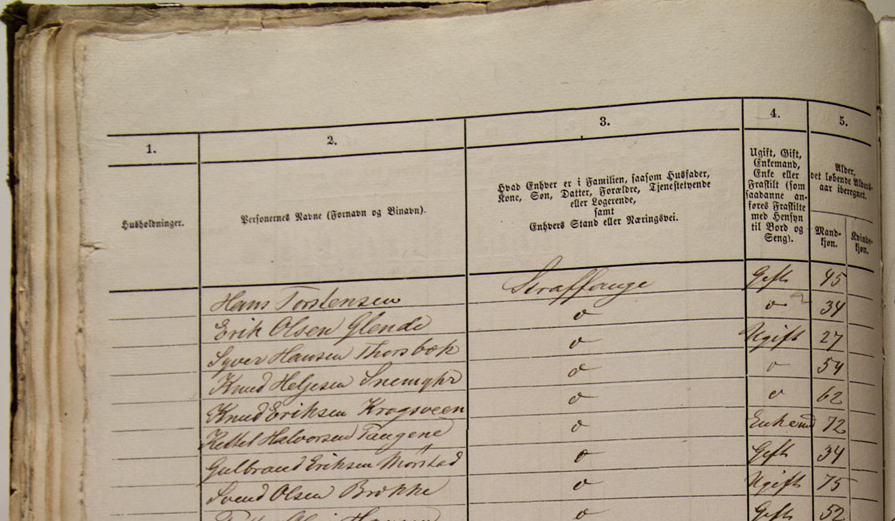 1. 2. 3. 4. 5.
Husholdninger.
Personernes Navne (Fornavn og Binavn).
Hvad Enhver er i Familien, saasom Husfader,
Kone, Søn, Datter, Forældre, Tjenestetyende
eller Logerende,
samt
Enhvers Stand eller Næringsvei.
Ugift, Gift,
Enkemand,
Enke eller
Fraskilt (som
saadanne an-
føres Fraskilte
med Hensyn
til Bord og
Seng).
Alder,
det løbende Alders-
aar iberegnet.
Mand-
kjøn.
Kvinde-
kjøn.
Hans Torstensen Straffange Gift 45
Erik Olsen Glende o o 34
Syver Hansen Thorsbæk o Ugift 27
Knud Helgesen o o 54
Knud Eriksen Krogsveen o o 62
Kettel Halvorsen Tangene o Enkemd 72
Gulbrand Eriksen Mørstad o Gift 34
Svend Olsen Brokke o Ugift 75
o Gift 52